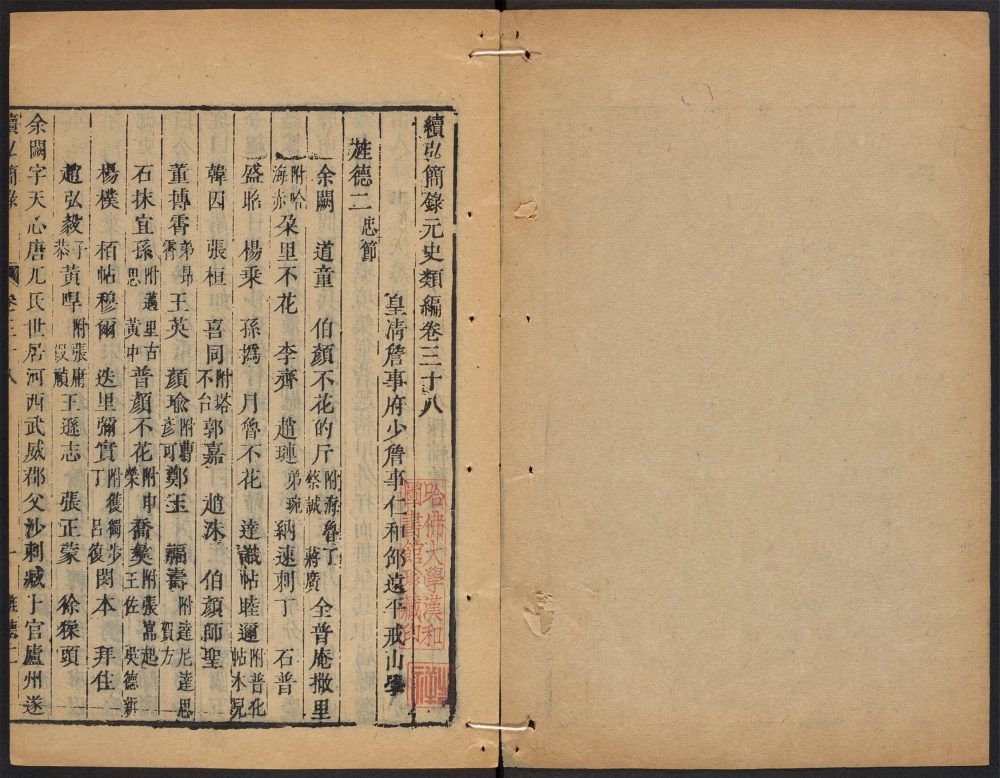 續弘簡錄元史類編卷三十八
皇清詹事府少詹事仁和邵遠平戒山學
旌德二 忠節
余闕 道童 伯顏不花的斤 附海魯丁 蔡誠 蔣廣 全普庵撒里
附哈海赤 朶里不花 李齊 趙璉 弟琬 納速剌丁 石普
盛昭 楊乘 孫撝 月魯不花 達識帖睦邇 附普化帖木兒
韓因 張桓 喜同 附塔不台 郭嘉 趙洙 伯顏師聖
董摶霄 弟昴霄 王英 顏瑜 附曹彥可 鄭玉 福壽 附達尼達思 賀方
石抹宜孫 附邁里古思 黃中 普顏不花 附申榮 喬彝 附張嵓起 王佐 吳德新
楊樸 栢帖穆爾 迭里彌實 附獲獨步丁 呂復 閔本 拜住
趙弘毅 子恭 黃㖔 附張庸 叚禎 王遜志 張正蒙 徐猱頭
余闕字天心唐兀氏世居河西武威郡父沙剌臧卜官廬州遂
續弘簡錄 卷三十八 一 旌德二
哈佛大學漢和圖書館珍藏印